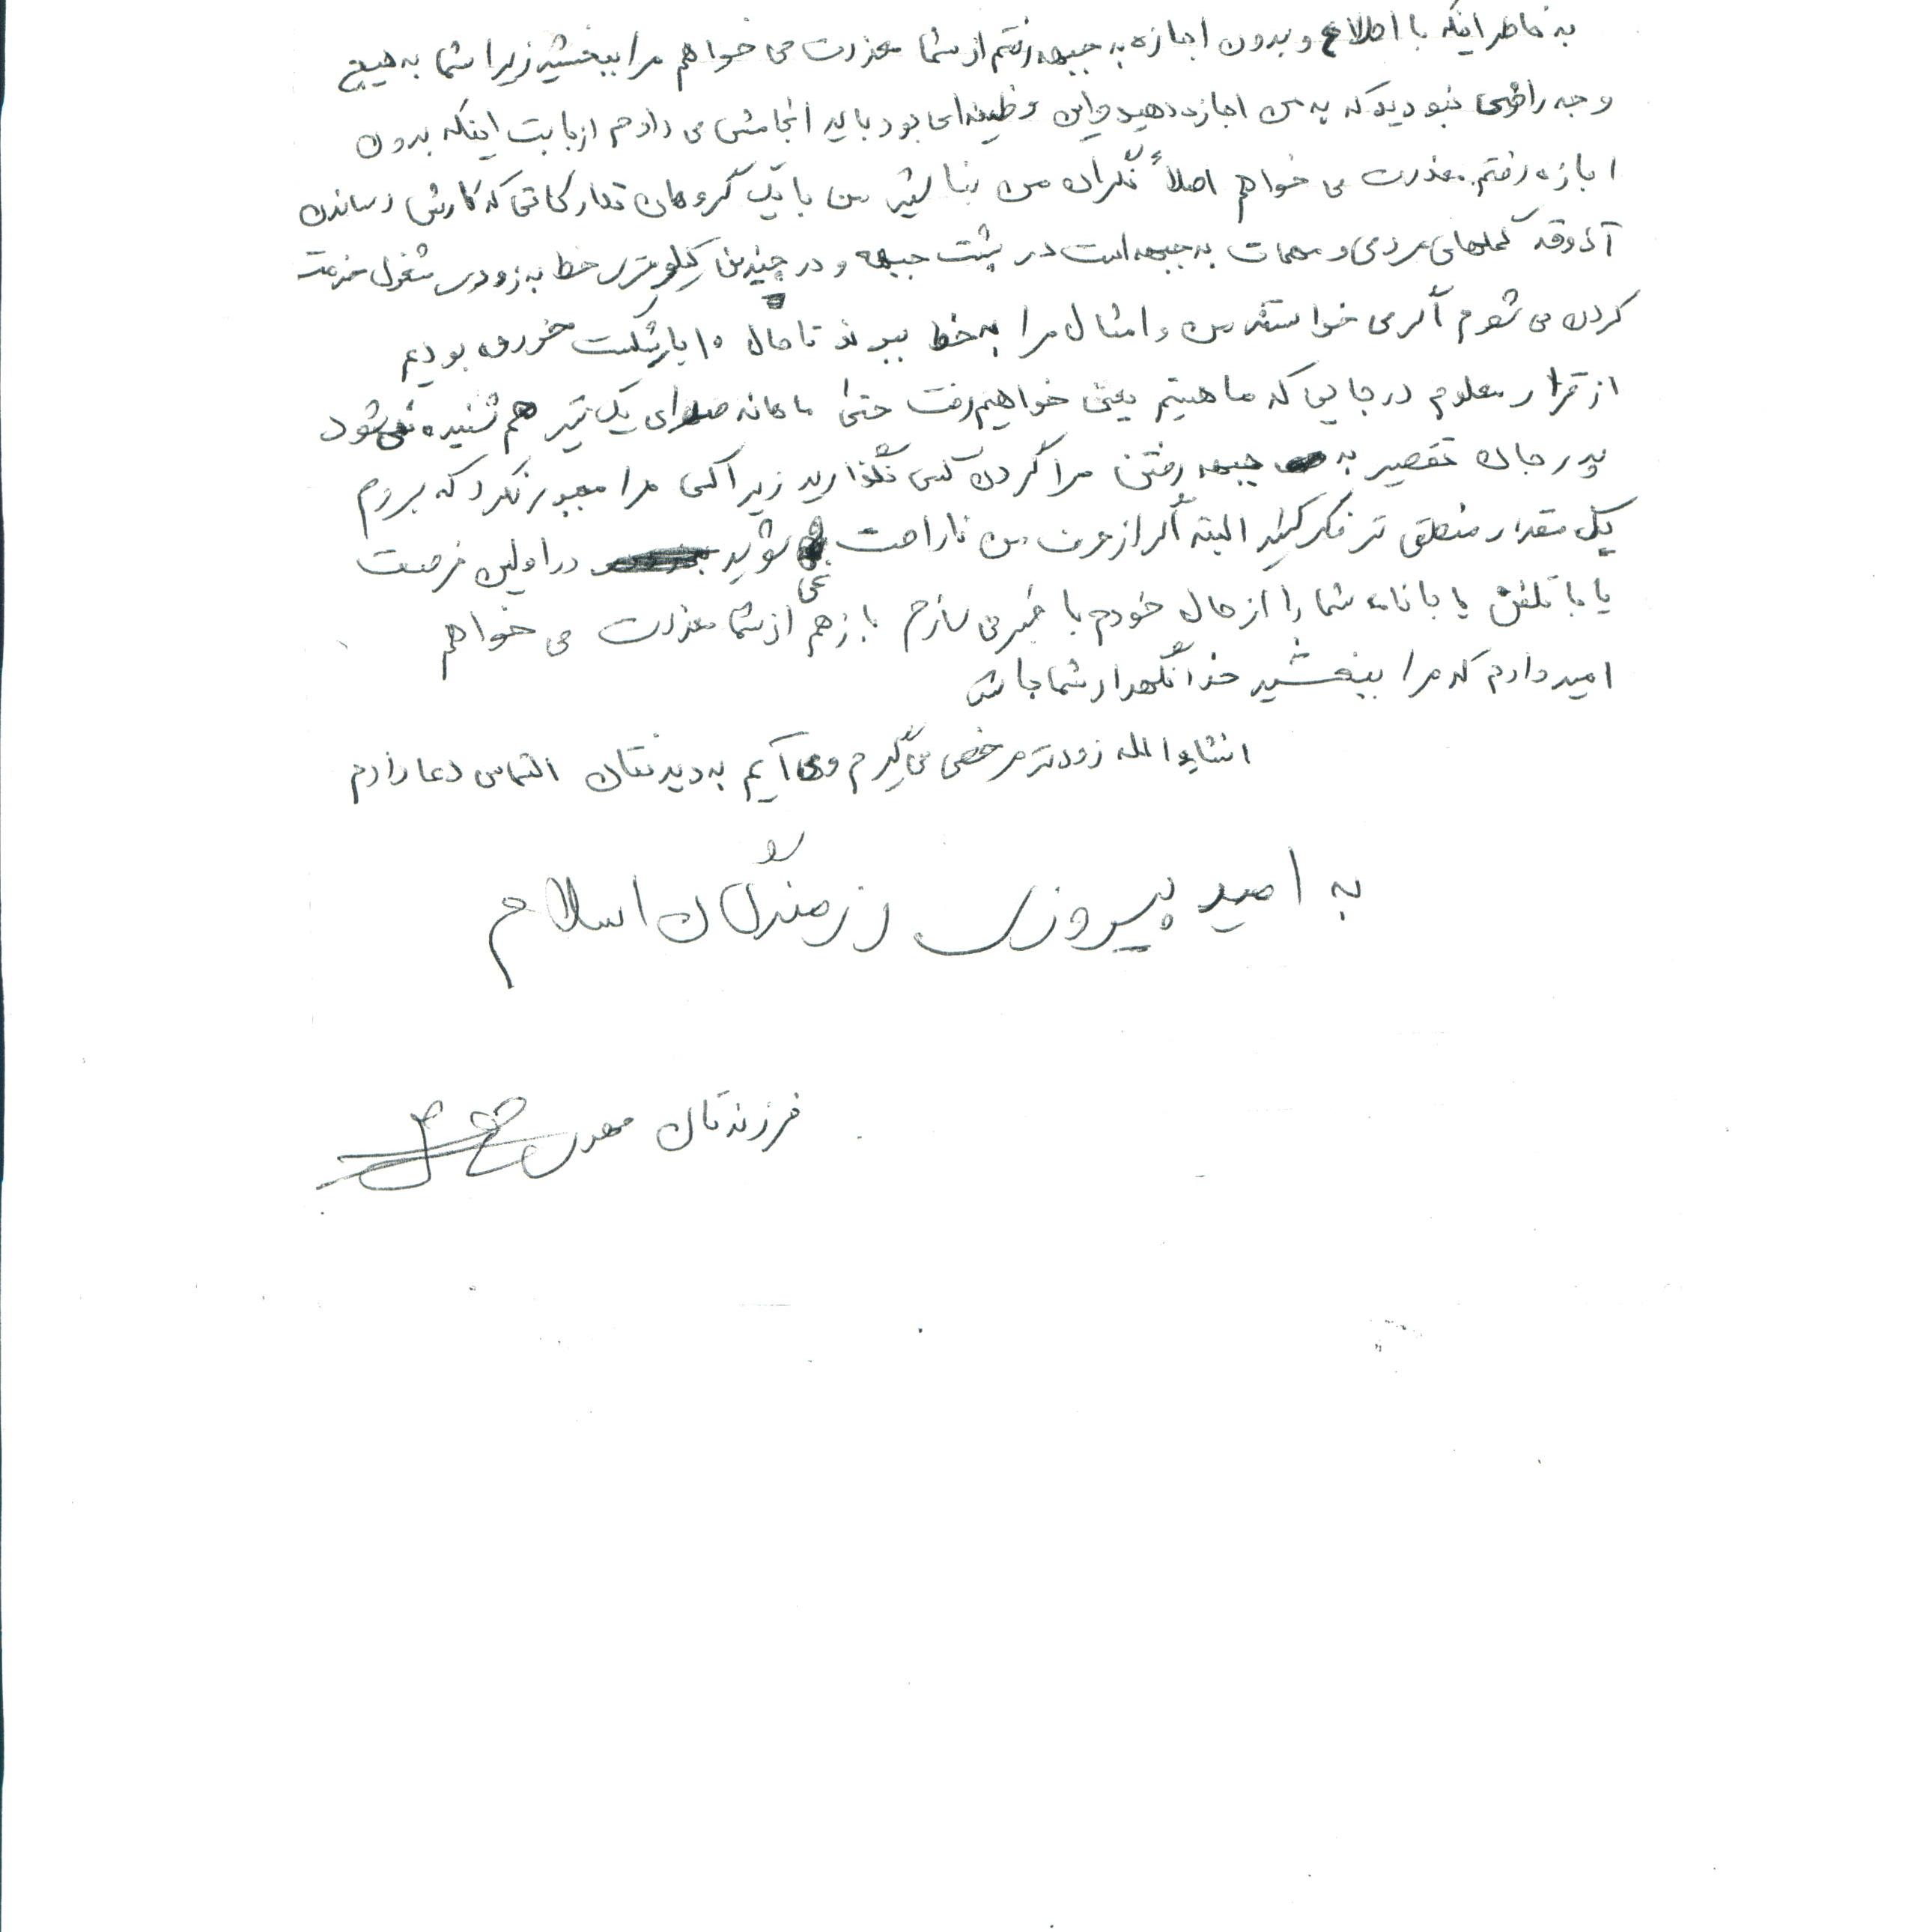 به خاطر اینکه با اطلاع و بدون اجازه به جبهه رفتم از شما معذرت می خواهم مرا ببخشید زیرا شما به هیچ
وجه راضی نبودید که به من اجازه دهید واین وظیفه ای بود باید انجامش می دادم از بابت اینکه بدون
اجازه رفتم معذرت می خواهم اصلاً نگران من نباشید من با یک گروهان تدارکاتی که کارش رساندن
آذوقه کمکهای مردمی و مهمات به جبهه است در پشت جبهه و در چندین کیلومتری خط به زودی مشغول خدمت
کردن می شوم اگر می خواستند من و امثال مرا به خط ببرند تا حال ۱۰ بار شکست خورده بودیم
از قرار معلوم در جایی که ما هستیم یعنی خواهیم رفت حتی ماهانه صدای یک تیر هم شنیده نمی شود
پدر جان تقصیر به جبهه رفتن مرا گردن کسی نگذارید زیرا کسی مرا مجبور نکرد که بروم
یک مقدار منطقی تر فکر کنید البته اگر از حرف من ناراحت نمی شوید در اولین فرصت
یا با تلفن یا با نامه شما را از حال خودم با خبر می سازم باز هم از شما معذرت می خواهم
امید دارم که مرا ببخشید خدا نگهدار شما باش
انشاء الله زودتر مرخصی می گیرم و می آیم به دیدنتان التماس دعا دارم
به امید پیروزی رزمندگان اسلام
فرزندتان مهدی